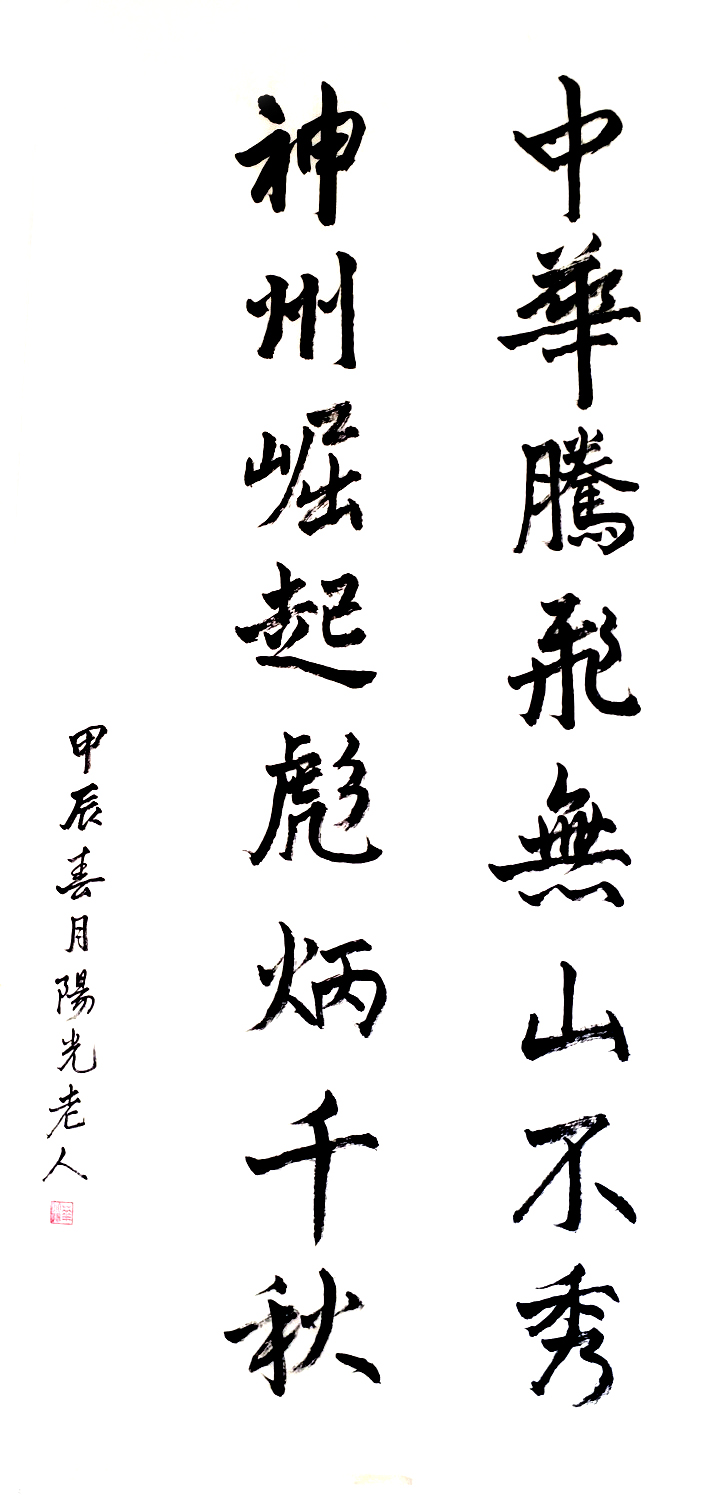 中華騰飛無山不秀
神州崛起彪炳千秋
甲辰春月陽光老人